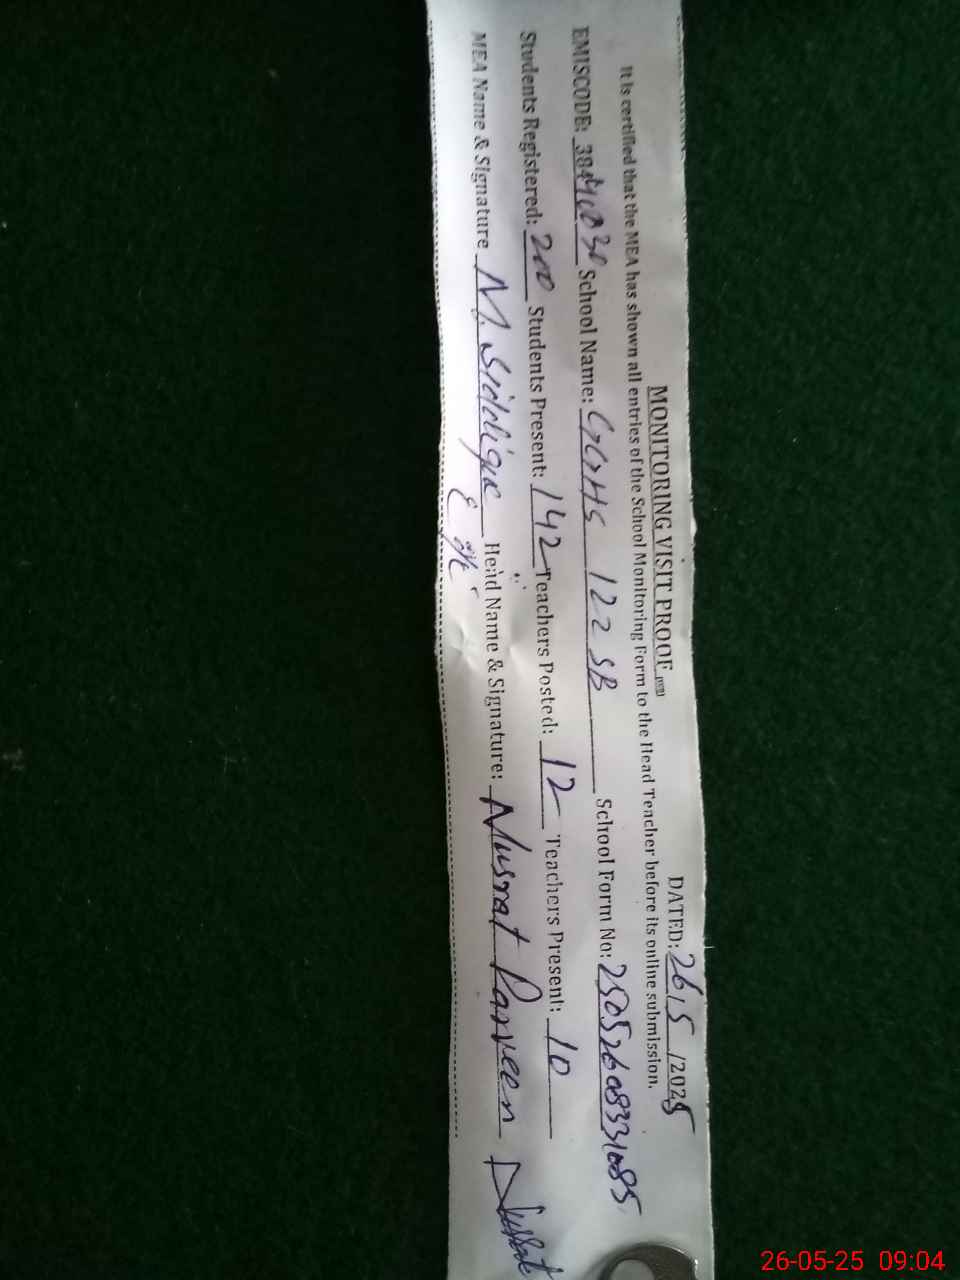 MONITORING VISIT PROOF
DATED: 26/5/2025
It is certified that the MEA has shown all entries of the School Monitoring Form to the Head Teacher before its online submission.
EMISCODE: 38440030 School Name: GGHS 122 SB School Form No: 25052608331085
Students Registered: 200 Students Present: 142 Teachers Posted: 12 Teachers Present: 10
MEA Name & Signature M. Siddique Head Name & Signature: Nusrat Parveen Nusrat
26-05-25 09:04